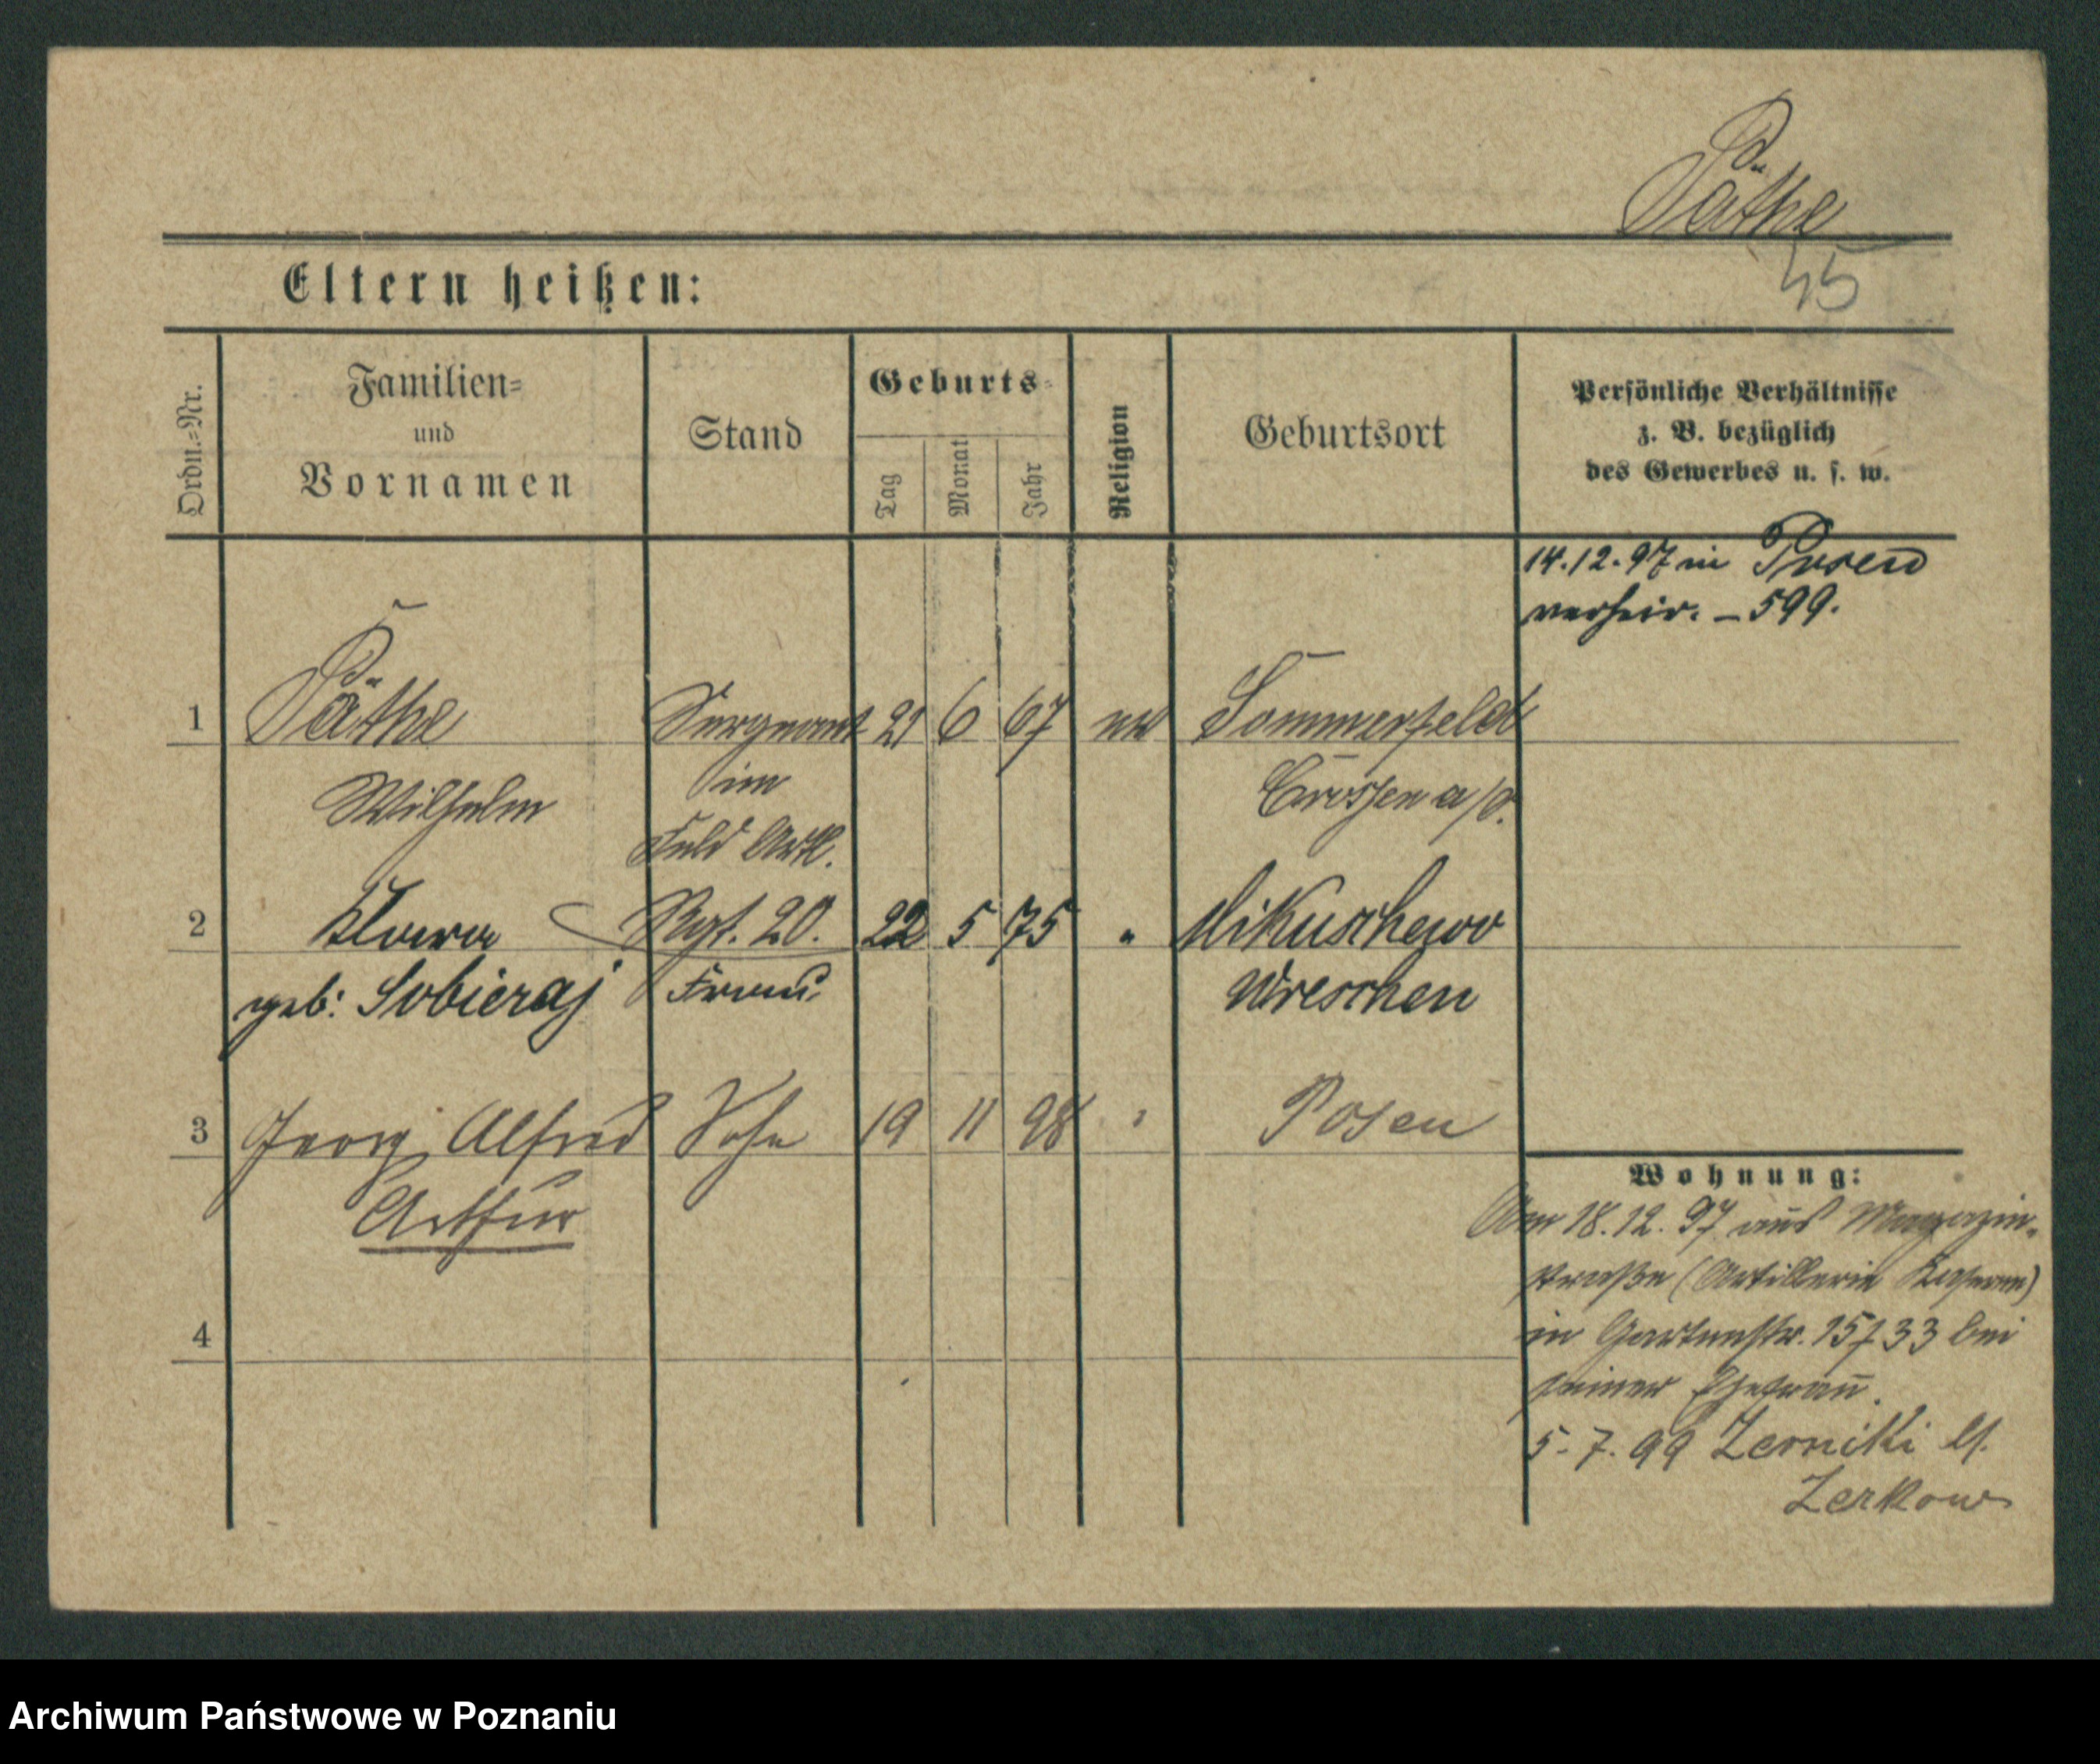 Päthe
45
Eltern heißen:
Ordn.=Nr.
Familien=
und
Vornamen
Stand
Geburts=
Tag
Monat
Jahr
Religion
Geburtsort
Persönliche Verhältnisse
z. B. bezüglich
des Gewerbes u. s. w.
14.12.97 in Posen
verheir. – 599.
1 Päthe Sergeant 21 6 67 ev Sommerfeld
Wilhelm im Crossen a/O.
Feld Artl.
2 Klara Rgt. 20. 22 5 75 " Mikuschewo
geb: Sobieraj Frau. Wreschen
3 Georg Alfred Sohn 19 11 98 " Posen
Arthur
Wohnung:
Am 18.12.97 aus Magazin-
straße (Artillerie Kaserne)
in Gartenstr. 15/33 bei
seiner Ehefrau.
5.7.99 Zerniki
Zerkow
4
Archiwum Państwowe w Poznaniu